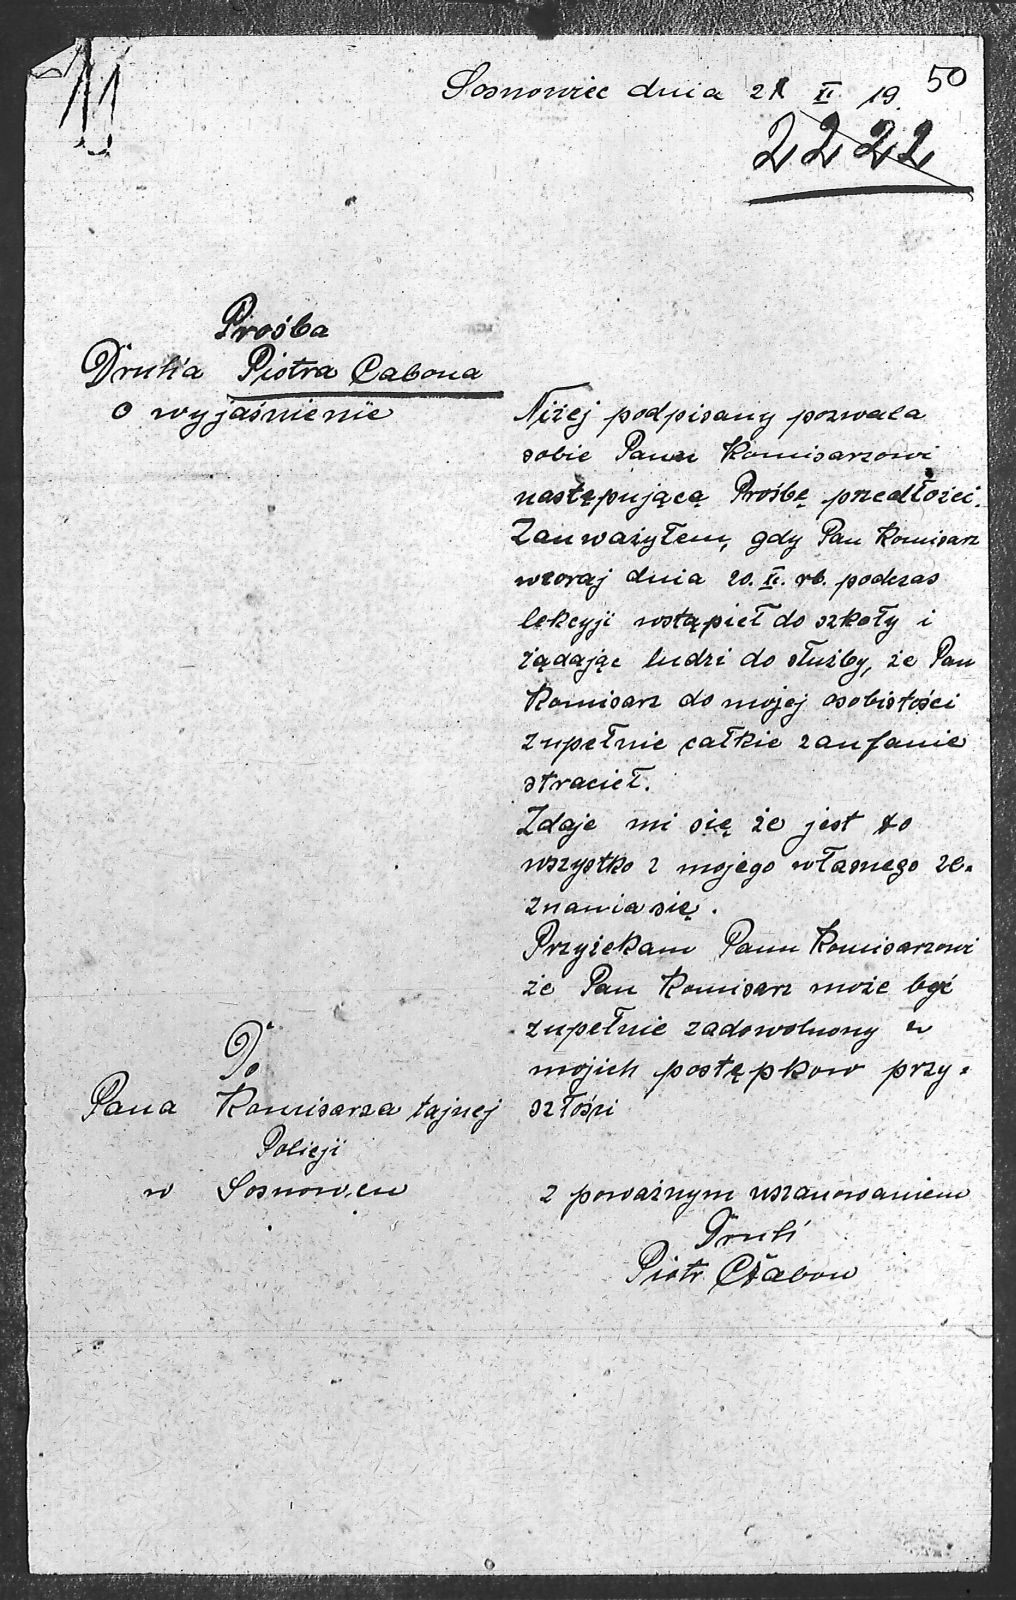 50
Sosnowiec dnia 21 XI. 19.
2222
Prośba
Druha Piotra Cabona
o wyjaśnienie
Niżej podpisany pozwala
sobie Panu Komisarzowi
następującą Prośbę przedłożeć.
Zauważyłem, gdy Pan Komisarz
wczoraj dnia 20. XI. rb. podczas
lekcyji wstąpieł do szkoły i
żądając ludzi do służby, że Pan
Komisarz do mojej osobistości
zupełnie całkie zaufanie
stracieł.
Zdaje mi się że jest to
wszystko z mojego własnego ze-
znania się.
Przyżekam Panu Komisarzowi
że Pan Komisarz może być
zupełnie zadowolnony w
mojich postępkow przy-
szłości
Do
Pana Komisarza tajnej
Policji
w Sosnowcu
z poważnym uszanowaniem
Druh
Piotr Czabon